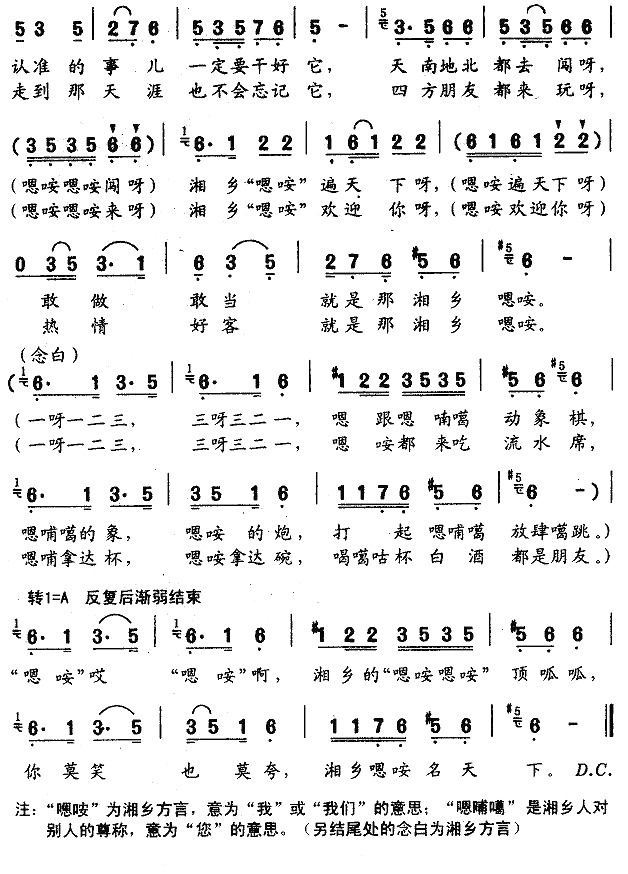 5 3 5 | 2 7 6 | 5 3 5 7 6 | 5 - | 3· 5 6 6 | 5 3 5 6 6 |
认准 的 事 儿 一定要干好 它， 天 南地北 都去 闯呀，
走到 那 天 涯 也不会忘记 它， 四 方朋友 都来 玩呀，
(3 5 3 5 6 6) | 6· 1 2 2 | 1 6 1 2 2 | (6 1 6 1 2 2) |
(嗯咹嗯咹闯呀) 湘 乡“嗯咹” 遍天 下呀，(嗯咹遍天下呀)
(嗯咹嗯咹来呀) 湘 乡“嗯咹” 欢迎 你呀，(嗯咹欢迎你呀)
0 3 5 3· 1 | 6 3 5 | 2 7 6 #5 6 | 6 - |
敢做 敢当 就是那湘乡 嗯咹。
热情 好客 就是那湘乡 嗯咹。
(念白)
(6· 1 3· 5 | 6· 1 6 | #1 2 2 3 5 3 5 | #5 6 6 |
(一呀一二三， 三呀三二一， 嗯 跟嗯 喃噶 动象棋，
(一呀一二三， 三呀三二一， 嗯 咹都 来吃 流水席，
6· 1 3· 5 | 3 5 1 6 | 1 1 7 6 #5 6 | 6 -) |
嗯哺噶的象， 嗯咹 的炮， 打 起 嗯哺噶 放肆噶跳。)
嗯哺拿达杯， 嗯咹拿达碗， 喝噶咕杯白酒 都是朋友。)
转1=A 反复后渐弱结束
6· 1 3· 5 | 6· 1 6 | #1 2 2 3 5 3 5 | #5 6 6 |
“嗯 咹”哎 “嗯 咹”啊， 湘乡的“嗯咹嗯咹” 顶呱呱，
6· 1 3· 5 | 3 5 1 6 | 1 1 7 6 #5 6 | 6 - ‖
你莫笑 也莫夸， 湘乡嗯咹名天 下。D.C.
注：“嗯咹”为湘乡方言，意为“我”或“我们”的意思；“嗯哺噶”是湘乡人对
别人的尊称，意为“您”的意思。（另结尾处的念白为湘乡方言）